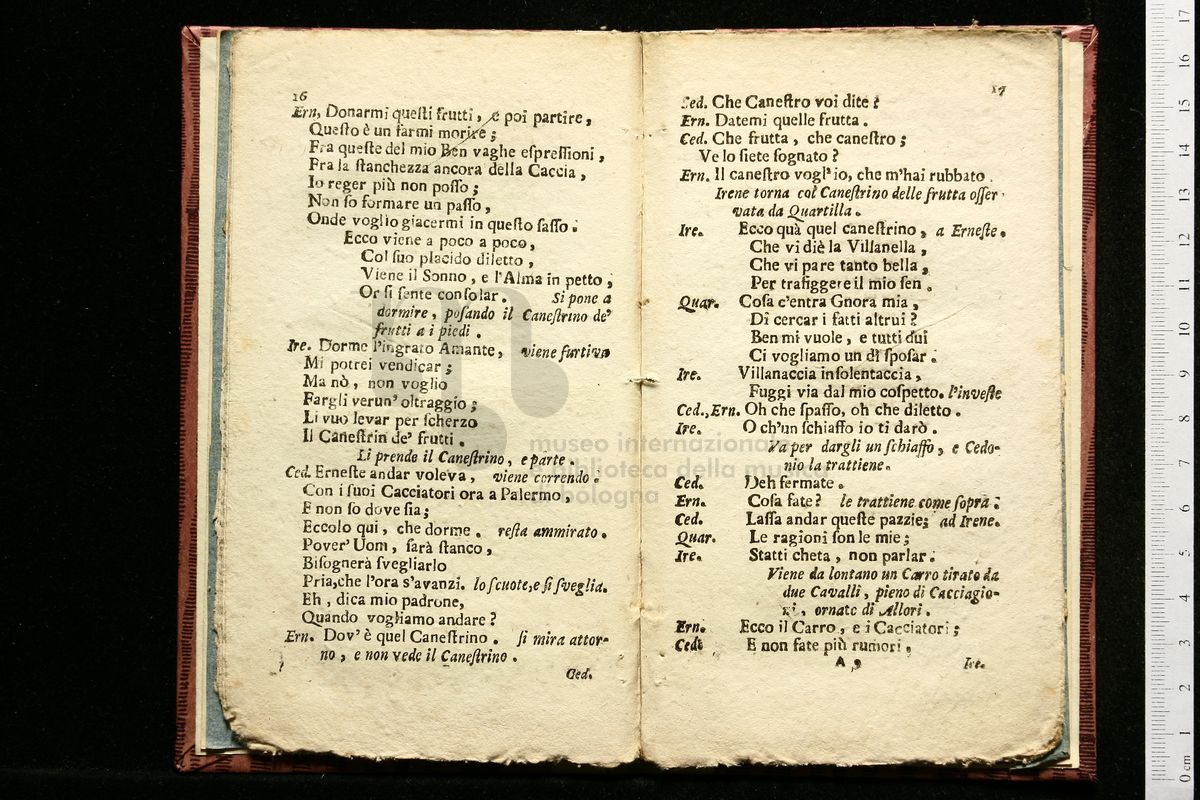 16
Ern, Donarmi queſti frutti, e poi partire,
Queſto è un farmi morire;
Fra queſte del mio Ben vaghe eſpreſſioni,
Fra la ſtanchezza ancora della Caccia,
Io reger più non poſſo;
Non ſo formare un paſſo,
Onde voglio giacermi in queſto ſaſſo.
Ecco viene a poco a poco,
Col ſuo placido diletto,
Viene il Sonno, e l'Alma in petto,
Or ſi ſente conſolar. Si pone a
dormire, poſando il Caneſtrino de'
frutti a i piedi.
Ire. Dorme l'ingrato Amante, viene furtiva
Mi potrei vendicar;
Ma nò, non voglio
Fargli verun' oltraggio;
Li vuo levar per ſcherzo
Il Caneſtrin de' frutti.
Li prende il Caneſtrino, e parte.
Ced. Erneſte andar voleva, viene correndo.
Con i ſuoi Cacciatori ora a Palermo,
E non ſo dove ſia;
Eccolo qui, che dorme. reſta ammirato.
Pover' Uom, ſarà ſtanco,
Biſognerà ſvegliarlo
Pria, che l'ora s'avanzi. lo ſcuote, e ſi ſveglia.
Eh, dica mio padrone,
Quando vogliamo andare?
Ern. Dov' è quel Caneſtrino. ſi mira attor-
no, e non vede il Caneſtrino.
Ced.
17
Ced. Che Caneſtro voi dite?
Ern. Datemi quelle frutta.
Ced. Che frutta, che caneſtro;
Ve lo ſiete ſognato?
Ern. Il caneſtro vogl' io, che m'hai rubbato.
Irene torna col Caneſtrino delle frutta oſſer-
vata da Quartilla.
Ire. Ecco quà quel caneſtrino, a Erneſte.
Che vi diè la Villanella,
Che vi pare tanto bella,
Per trafiggere il mio ſen.
Quar. Coſa c'entra Gnora mia,
Di cercar i fatti altrui?
Ben mi vuole, e tutti dui
Ci vogliamo un dì ſpoſar.
Ire. Villanaccia inſolentaccia,
Fuggi via dal mio coſpetto. l'inveſte
Ced., Ern. Oh che ſpaſſo, oh che diletto.
Ire. O ch'un ſchiaffo io ti darò.
Va per dargli un ſchiaffo, e Cedo-
nio la trattiene.
Ced. Deh fermate.
Ern. Coſa fate? le trattiene come ſopra.
Ced. Laſſa andar queſte pazzie; ad Irene.
Quar. Le ragioni ſon le mie;
Ire. Statti cheta, non parlar.
Viene da lontano un Carro tirato da
due Cavalli, pieno di Cacciagio-
ni, ornato di Allori.
Ern. Ecco il Carro, e i Cacciatori;
Ced. E non fate più rumori.
A 9
Ire.
museo internazionale
e biblioteca della musica
bologna
0 cm 1 2 3 4 5 6 7 8 9 10 11 12 13 14 15 16 17